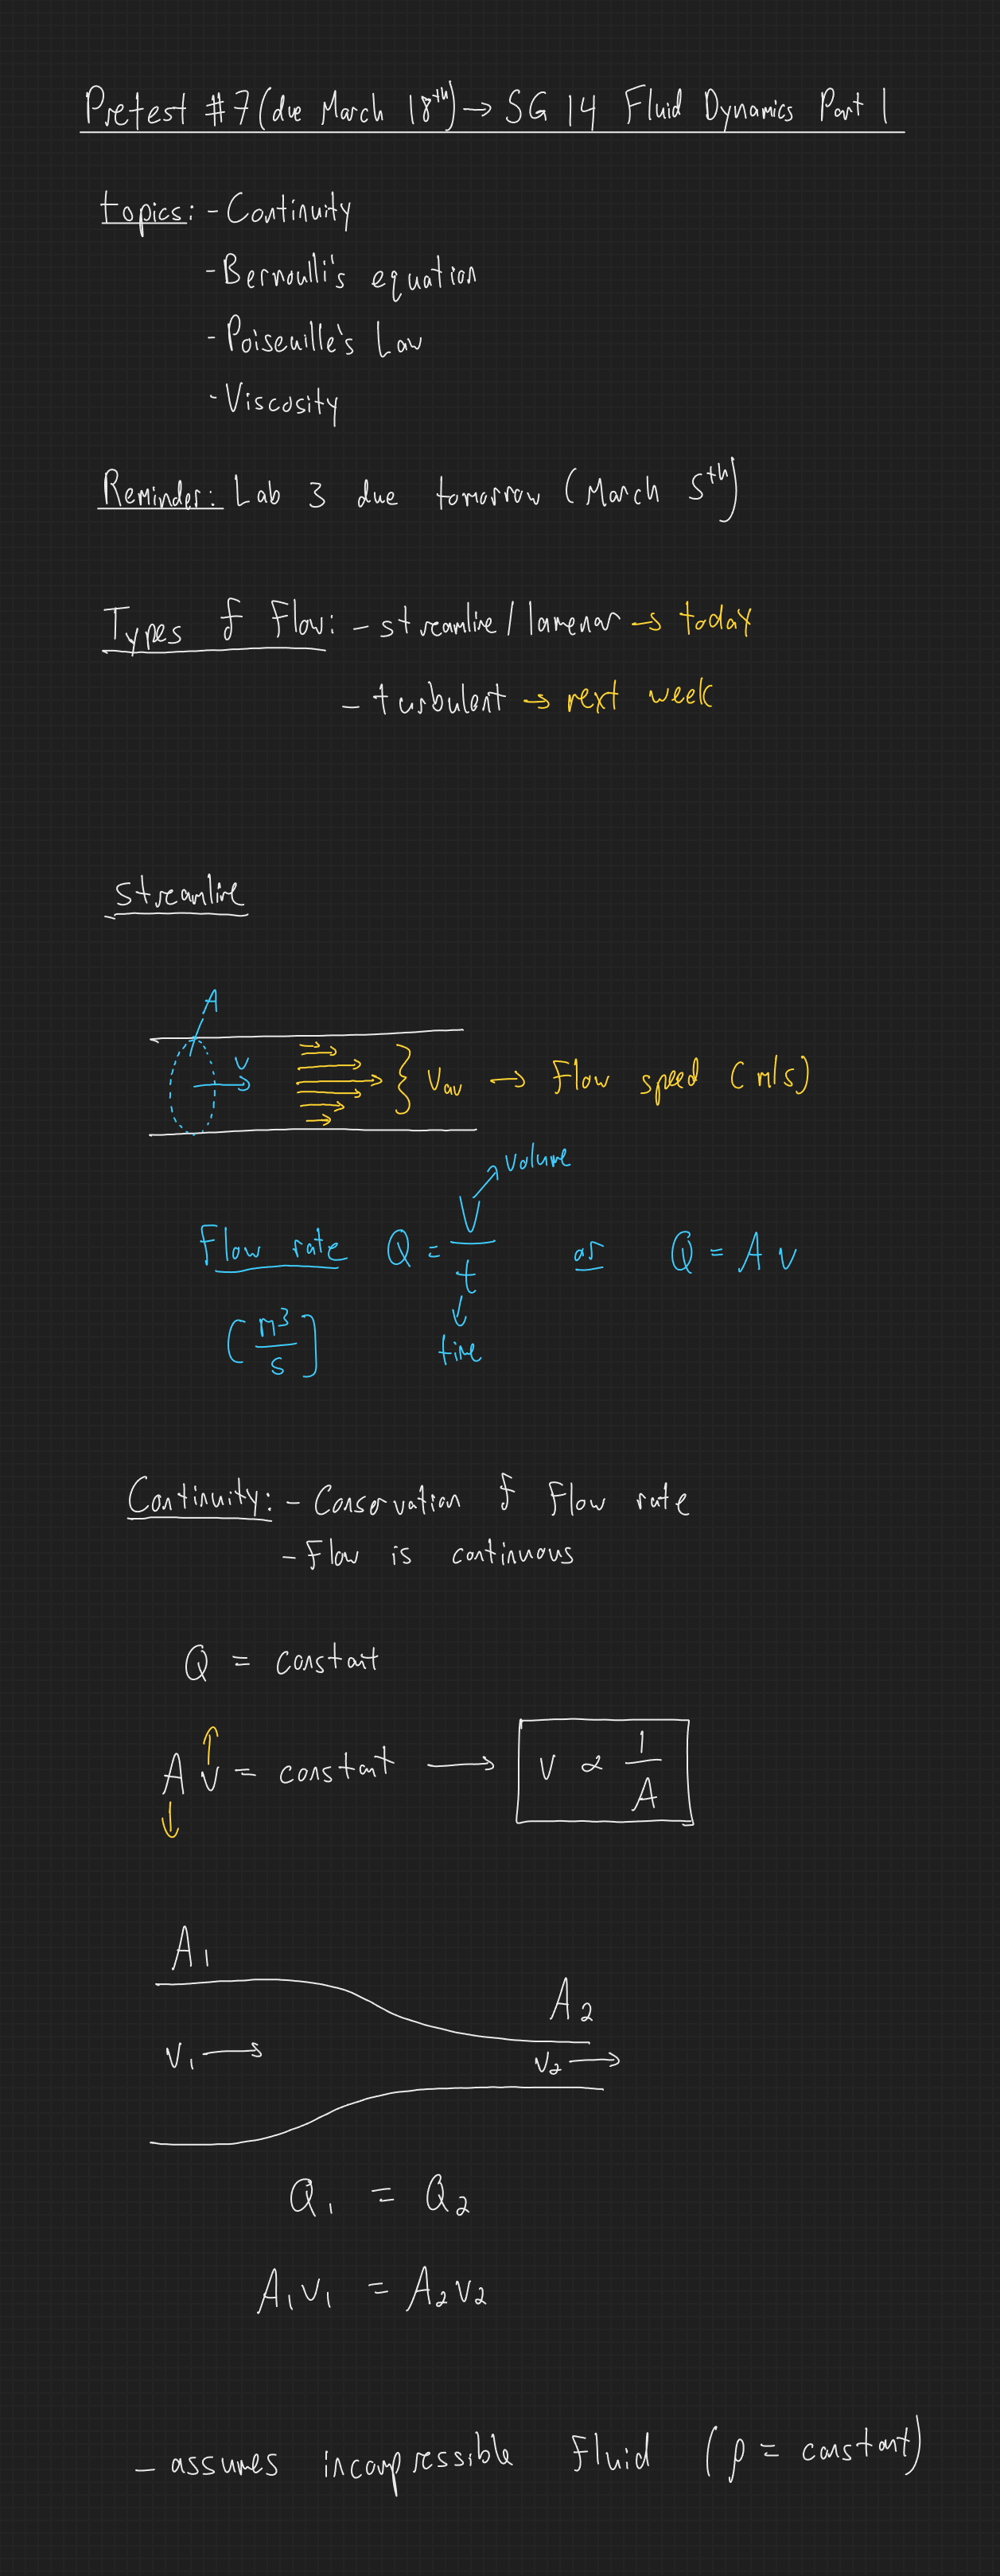 Pretest #7 (due March 18th) → SG 14 Fluid Dynamics Part 1
topics: - Continuity
- Bernoulli's equation
- Poiseuille's Law
- Viscosity
Reminder: Lab 3 due tomorrow (March 5th)
Types of Flow: - streamline/lamenar → today
- turbulent → next week
streamline
A
v
} Vav → Flow speed (m/s)
volume
Flow rate Q = V/t or Q = A v
[m³/s]
time
Continuity: - Conservation of Flow rate
- Flow is continuous
Q = constant
A v = constant → v ∝ 1/A
A1
A2
v1 →
v2 →
Q1 = Q2
A1v1 = A2v2
- assumes incompressible fluid (ρ = constant)